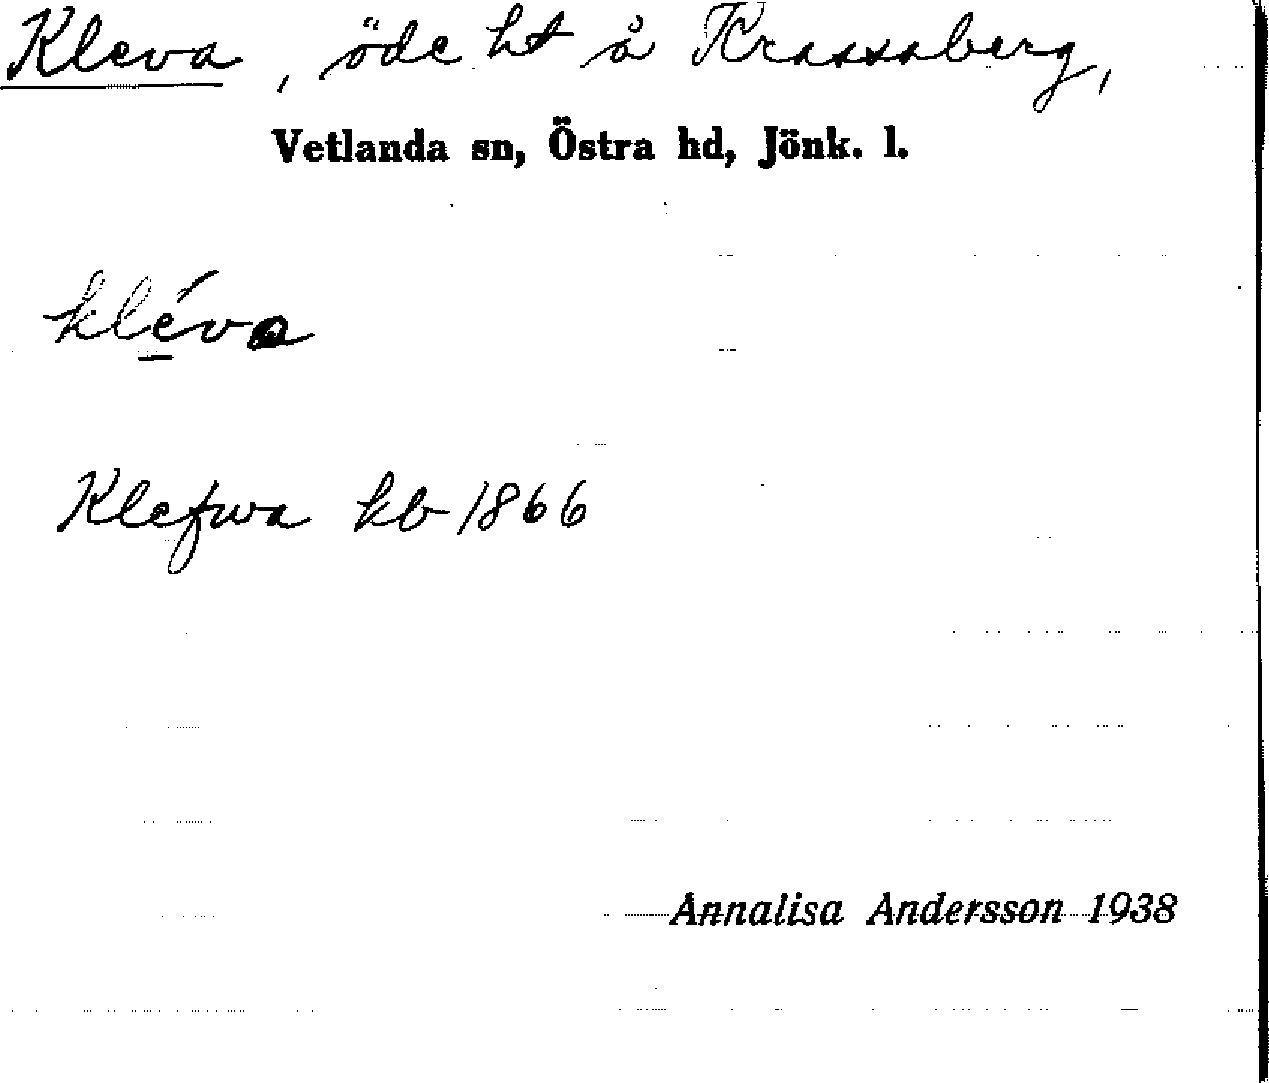 Kleva, öde ht å Krassaberg,
Vetlanda sn, Östra hd, Jönk. l.
kléva
Klefwa kb 1866
Annalisa Andersson 1938